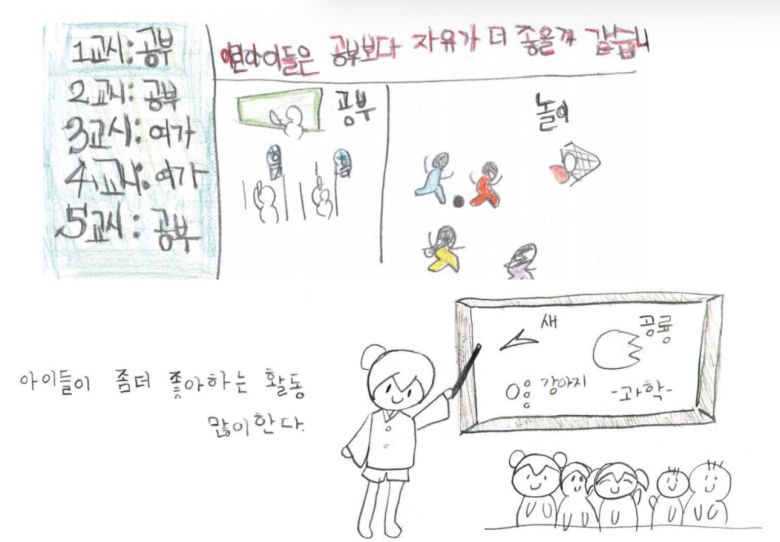 1교시: 공부
2교시: 공부
3교시: 여가
4교시: 여가
5교시: 공부
공부보다 자유가 더 같습니
공부
놀이
아이들이 좀더 좋아하는 활동
많이한다.
새
공룡
강아지
-과학-